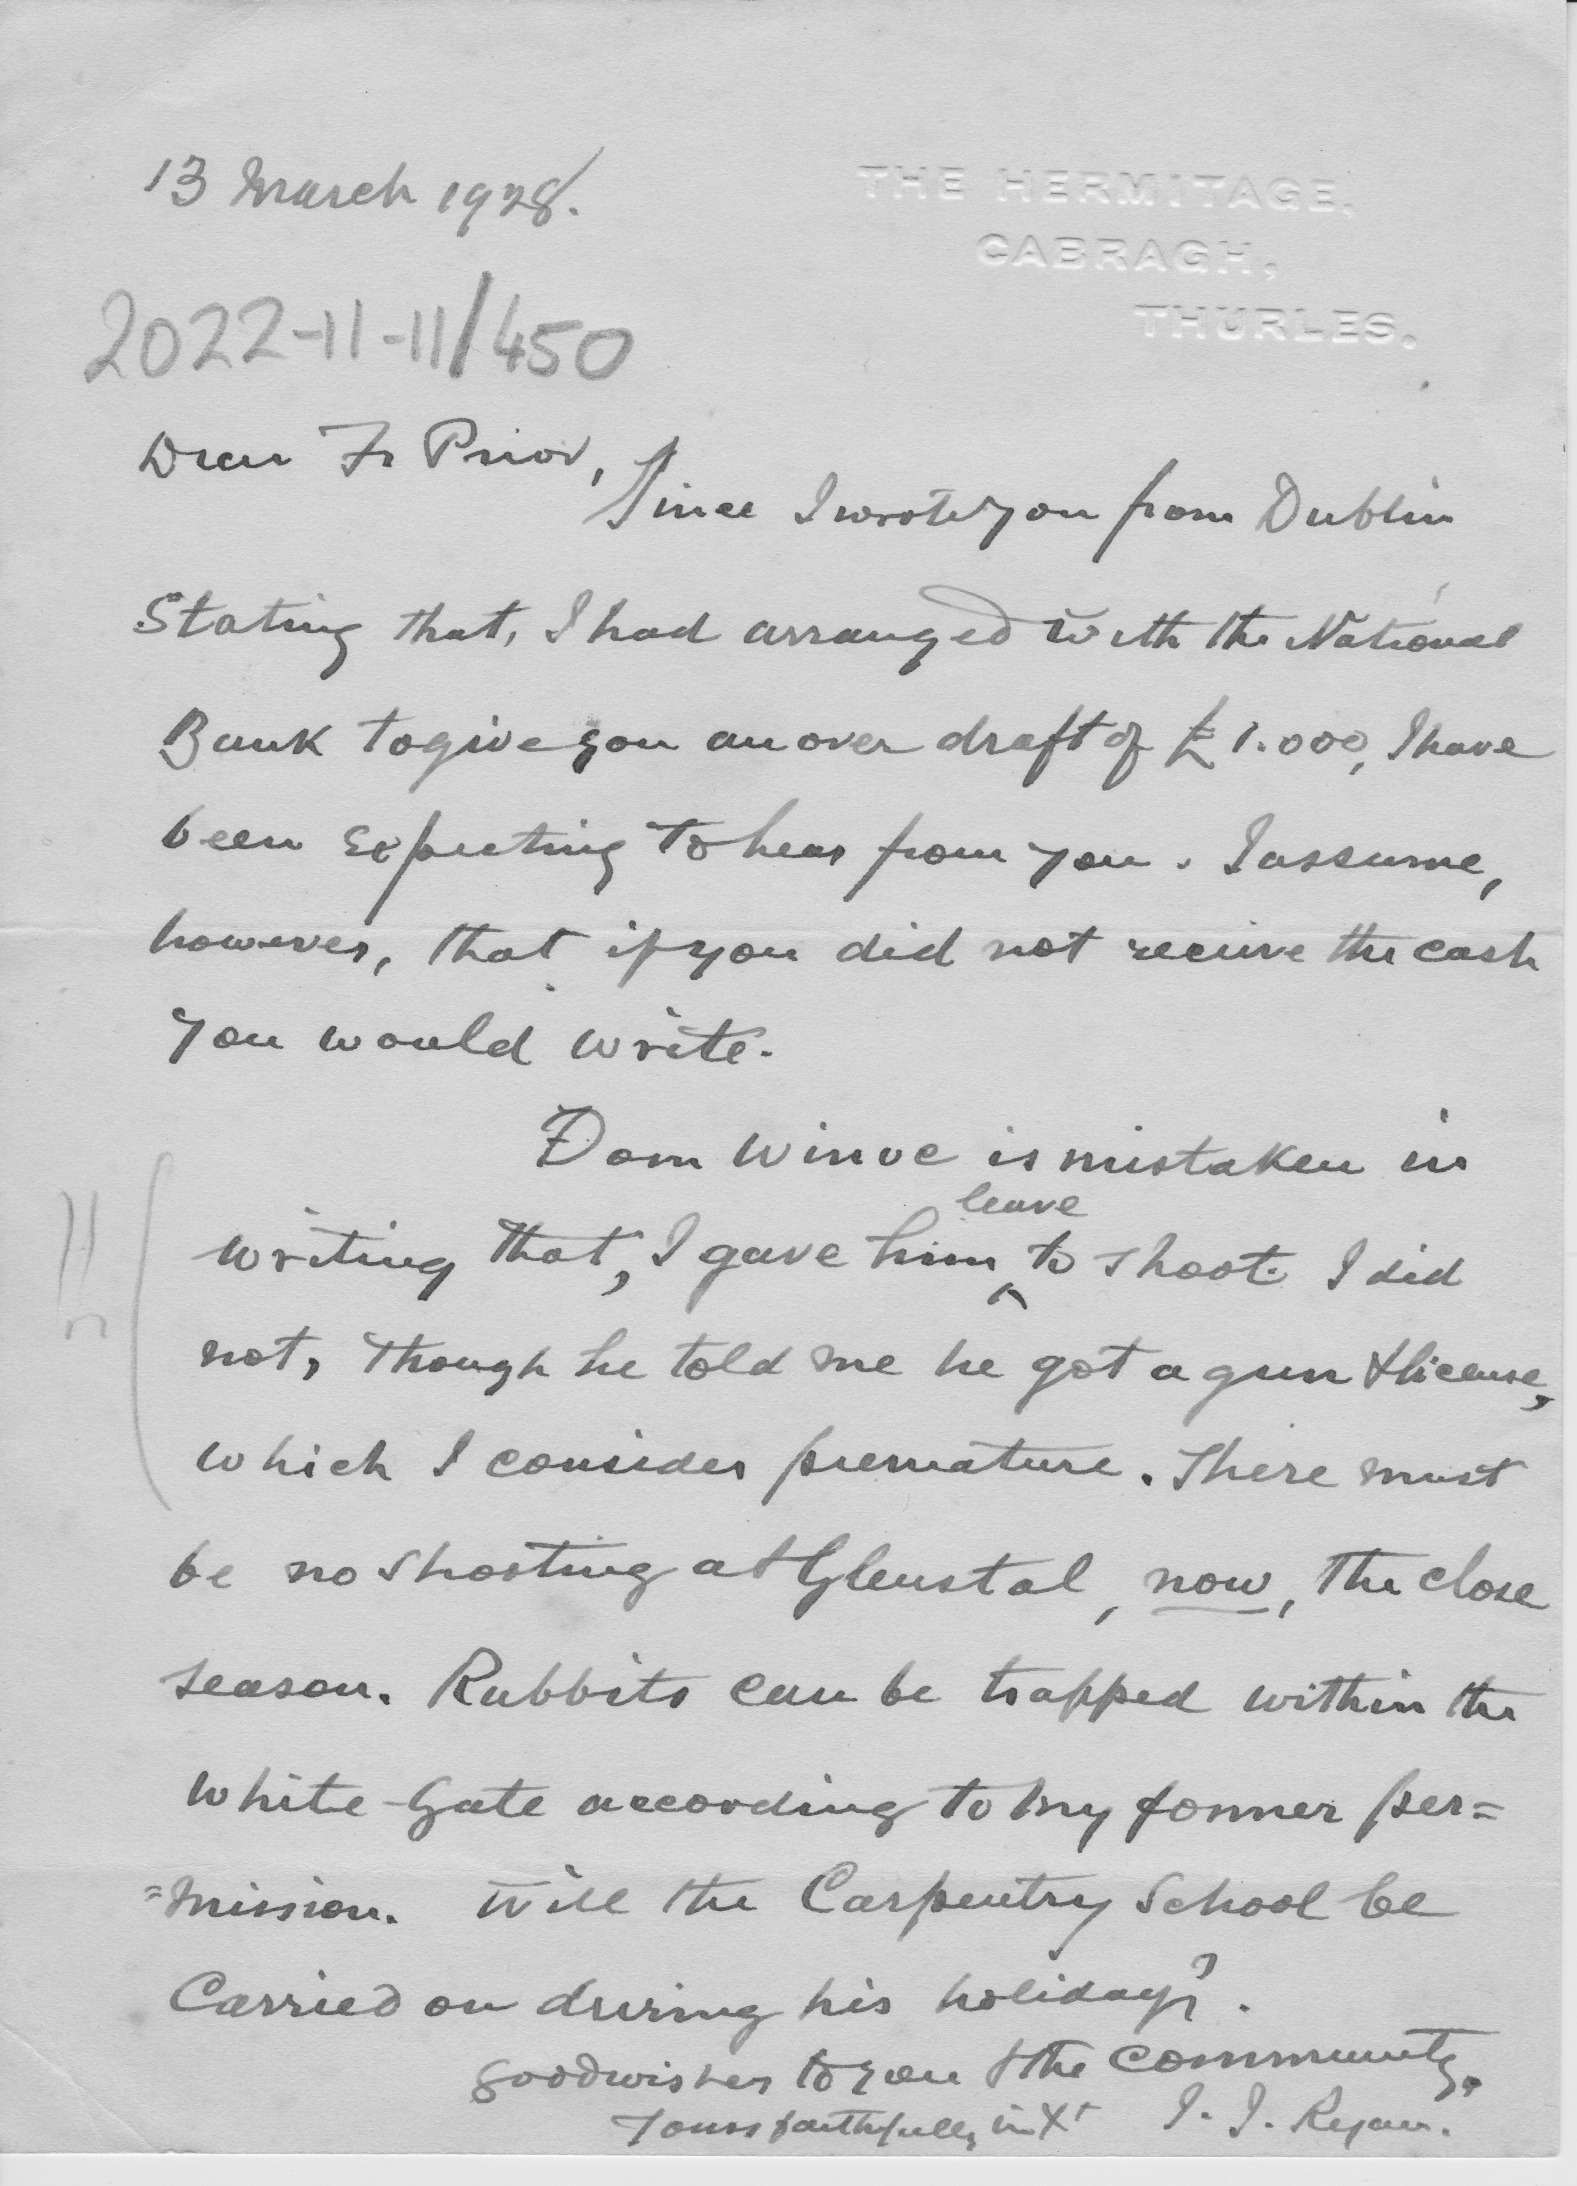 13 March 1928.
THE HERMITAGE,
CABRAGH,
THURLES.
2022-11-11/450
Dear Fr Prior,
Since I wrote you from Dublin
Stating that, I had arranged with the National
Bank to give you an over draft of £1.000, I have
been expecting to hear from you. I assume,
however, that if you did not receive the cash
you would write.
Dom Winoc is mistaken in
leave
writing that, I gave him ^ to shoot. I did
not, though he told me he got a gun & license,
which I consider premature. There must
be no shooting at Glenstal, now, the close
season. Rabbits can be trapped within the
White-Gate according to my former per=
=mission. Will the Carpentry School be
Carried on during his holidays?
Goodwishes to you & the Community.
Yours faithfully in Xt J. J. Ryan.